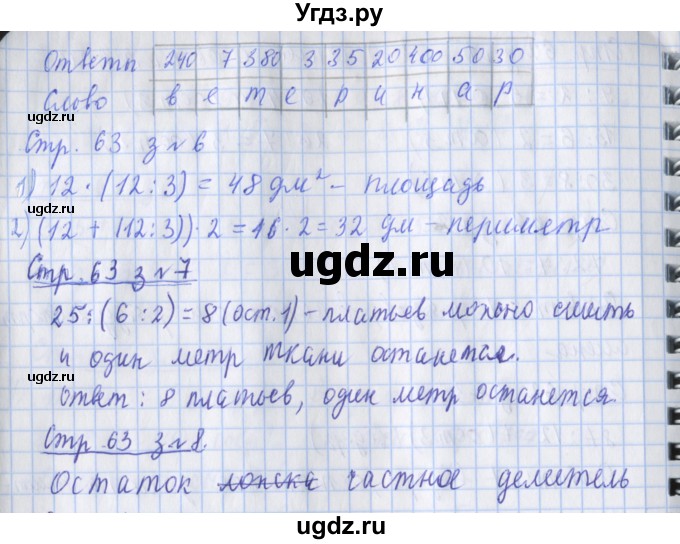 Угдз.ру
Ответы 240 7 380 3 35 20 400 50 30
Слово в е т е р и н а р
Стр. 63 з № 6
1) 12 · (12 : 3) = 48 дм² – площадь
2) (12 + (12:3)) · 2 = 16 · 2 = 32 дм – периметр
Стр. 63 з № 7
25 : (6 : 2) = 8 (ост. 1) – платьев можно сшить
и один метр ткани останется.
Ответ : 8 платьев, один метр останется
Стр 63 з № 8.
Остаток частное делитель
ugdz.ru
ugdz.ru
ugdz.ru
ugdz.ru
ugdz.ru
ugdz.ru
ugdz.ru
ugdz.ru